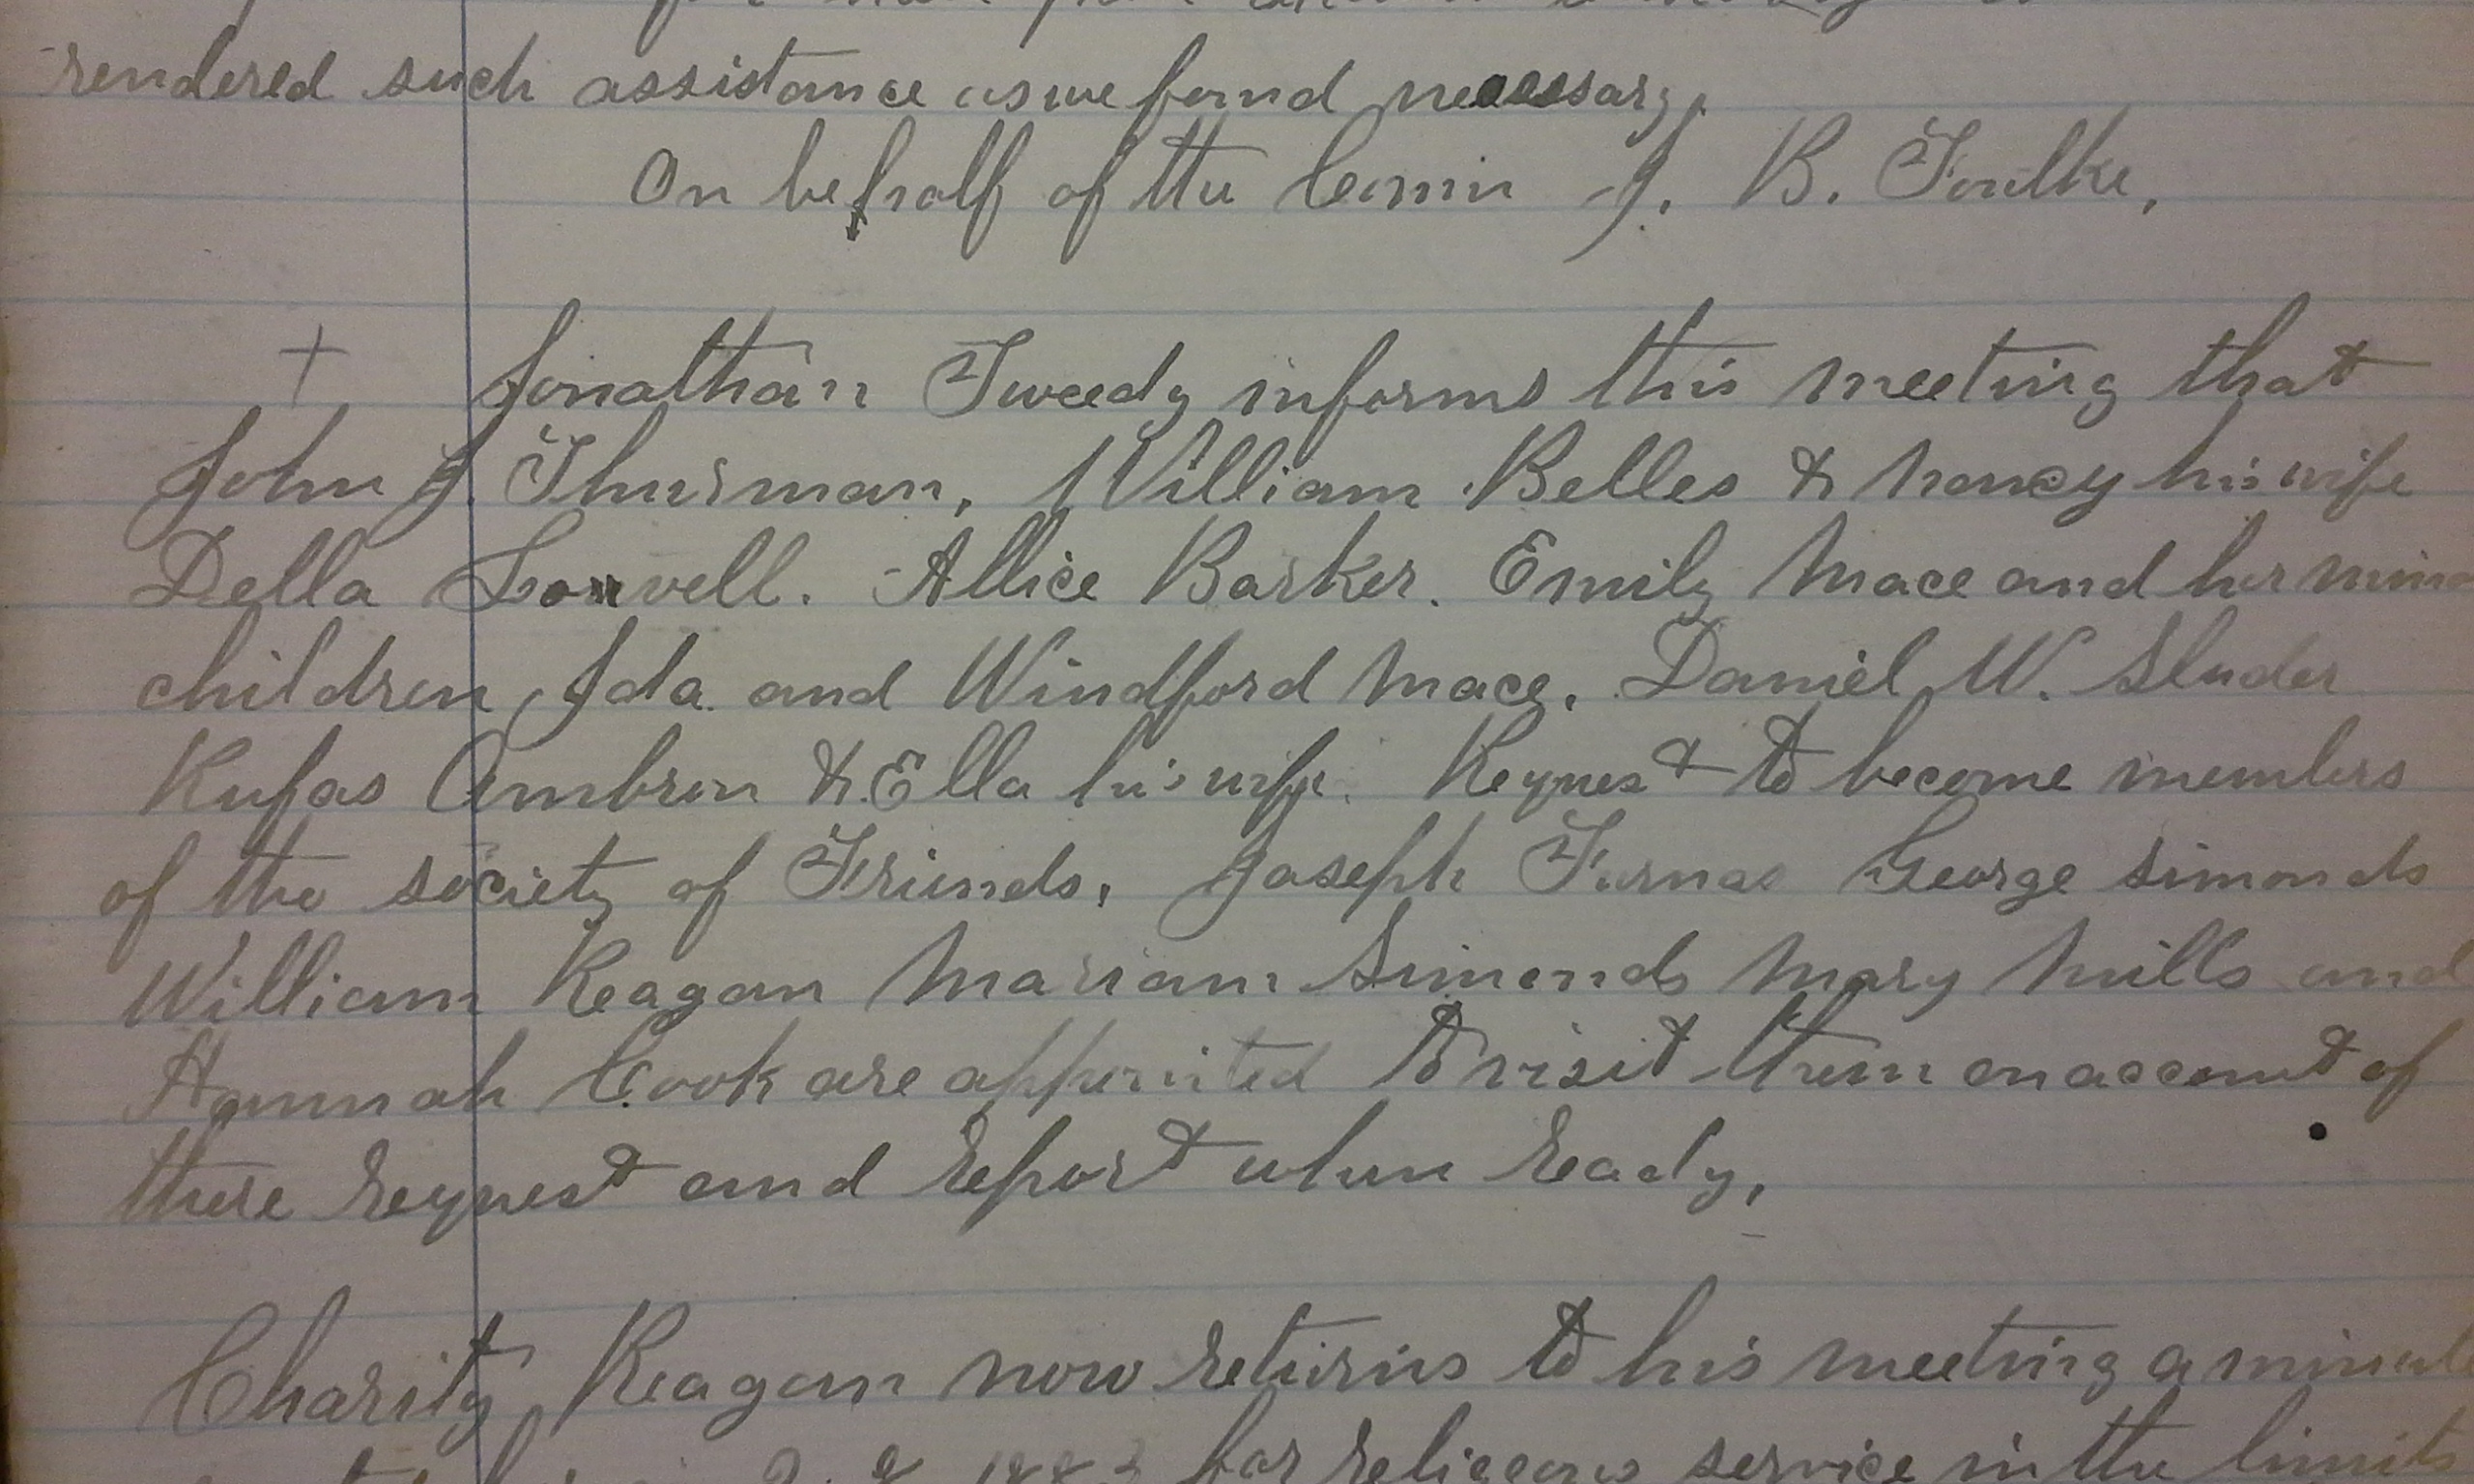 rendered such assistance as we found necessary.
On behalf of the Comin J. B. Foulke,
Jonathan Tweedy informs this meeting that
John J. Thurman, William Belles & Nancy his wife
Della Lowvell. Allice Barker. Emily Mace and her mino
children, Ida and Windford Mace. Daniel W. Sluder
Rufas Ambren & Ella his wife. Request to become members
of the society of Friends, Joseph Furnas George Simonds
William Reagan Mariam Simonds Mary Mills and
Hannah Cook are appointed to visit them on account of
there request and report when ready,
Charity Reagan now returns to his meeting a minute
1883 for religeous service in the limits